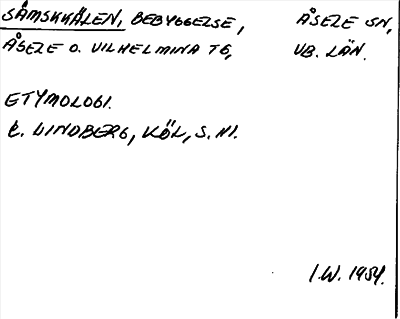 SÅMSKKÄLEN, BEBYGGELSE, ÅSELE SN,
ÅSELE O. VILHELMINA TG, VB. LÄN.
ETYMOLOGI.
C. LINDBERG, KÖL, S. 141.
I.W. 1954.